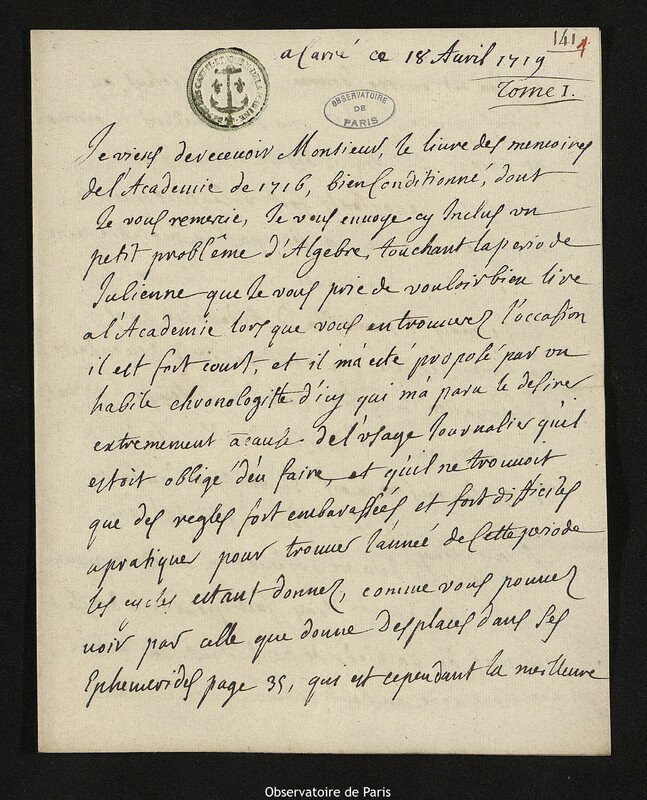 141 4
a Carré ce 18 Avril 1719
Tome I.
OBSERVATOIRE
DE
PARIS
Je viens de recevoir Monsieur, le livre des memoires
de l'Academie de 1716, bien Conditionné, dont
Je vous remercie, Je vous envoye cy Inclus un
petit problême d'Algebre, touchant la periode
Julienne que Je vous prie de vouloir bien lire
a l'Academie lors que vous en trouverez l'occasion
il est fort court, et il m'a esté proposé par un
habile chronologiste d'icy qui m'a paru le desirer
extremement a cause de l'usage Journalier qu'il
estoit obligé d'en faire, et qu'il ne trouvoit
que des regles fort embarassées et fort difficiles
a pratiquer pour trouver l'année de Cette periode
les cycles estant donnez, comme vous pouvez
voir par celle que donne Desplaces dans Ses
Ephemerides page 35, qui est cependant la meilleure
Observatoire de Paris